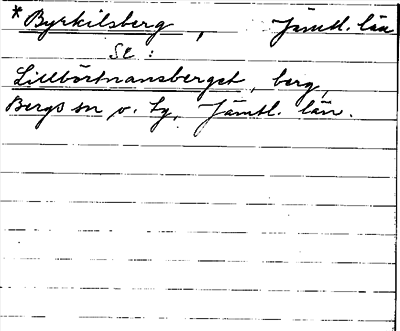 *Byrkilsberg, Jämtl. län
se:
Lillbörtnansberget, berg,
Bergs sn o. tg, Jämtl. län.